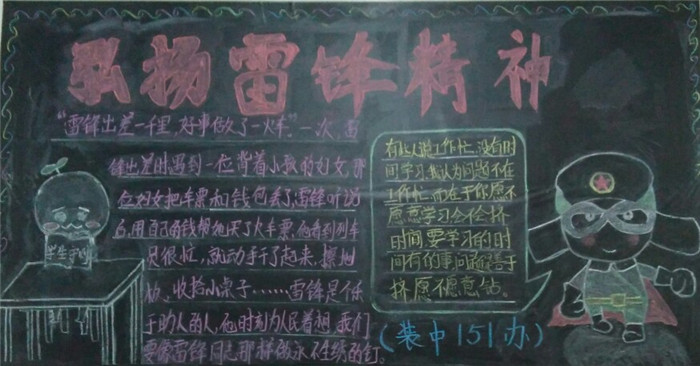 弘扬雷锋精神
"雷锋出差一千里，好事做了一火车"一次，雷
锋出差时遇到一位背着小孩的妇女，那
位妇女把车票和钱包丢了，雷锋听说
后，用自己的钱帮她买了火车票，他看到列车
员很忙，就动手干了起来，擦地
板、收拾小桌子……雷锋是个乐
于助人的人，他时刻为人民着想，我们
要像雷锋同志那样做永不生锈的钉。
有些人说工作忙、没有时
间学习，我认为问题不在
工作忙，而在于你愿不
愿意学习，会不会挤
时间，要学习的时
间有的事，问题是善于
挤，愿不愿意钻。
学生手册
(装中151办)